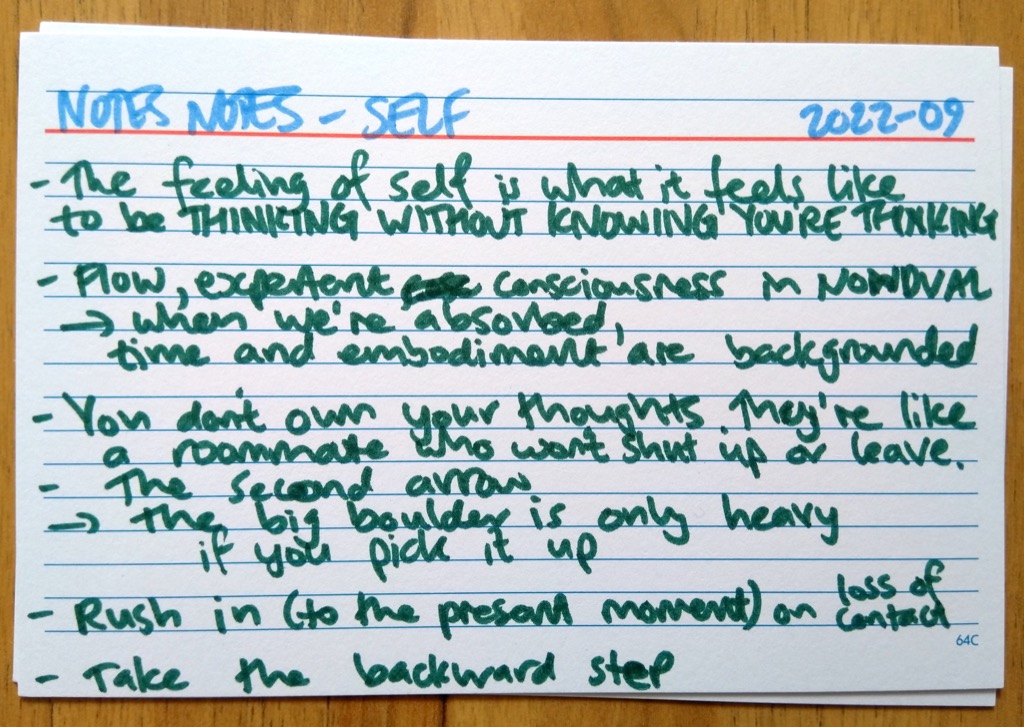 NOTES NOTES - SELF 2022-09
- The feeling of self is what it feels like
to be THINKING WITHOUT KNOWING YOU'RE THINKING
- Flow, consciousness in NONDUAL
→ when we're absorbed,
time and embodiment are backgrounded
- You don't own your thoughts. They're like
a roommate who won't shut up or leave.
- The second arrow
→ the big boulder is only heavy
if you pick it up
- Rush in (to the present moment) on loss of contact
64C
- Take the backward step